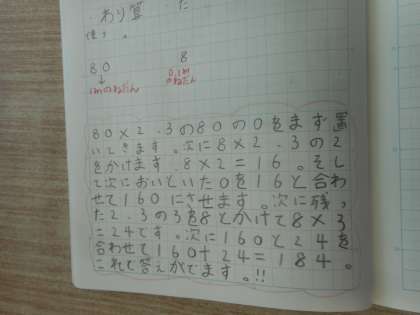 ・わり算
使う。
80 8
↓
1mのねだん 0.1mのねだん
80×2.3の80の0をまず置
いときます。次に8×2.3の2
をかけます。8×2=16。そし
て次においといた0を16と合わ
せて160にさせます。次に残っ
た2.3の3を8とかけて8×3
=24です。次に160と24を
合わせて160+24=184。
これで答えがでます。!!